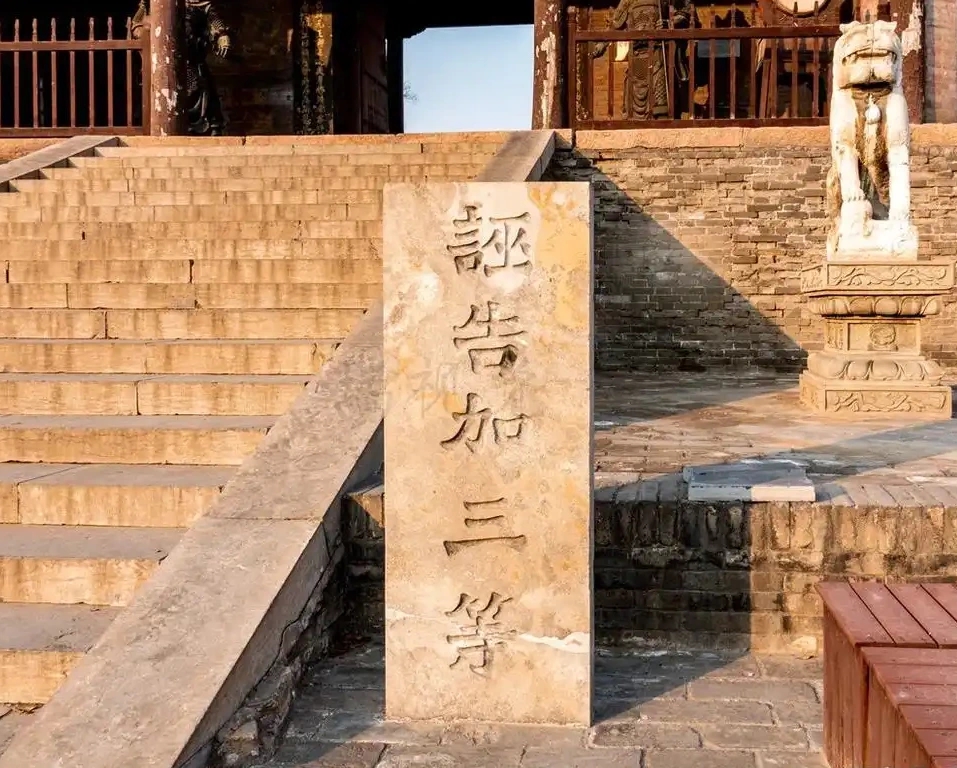 誣告加三等